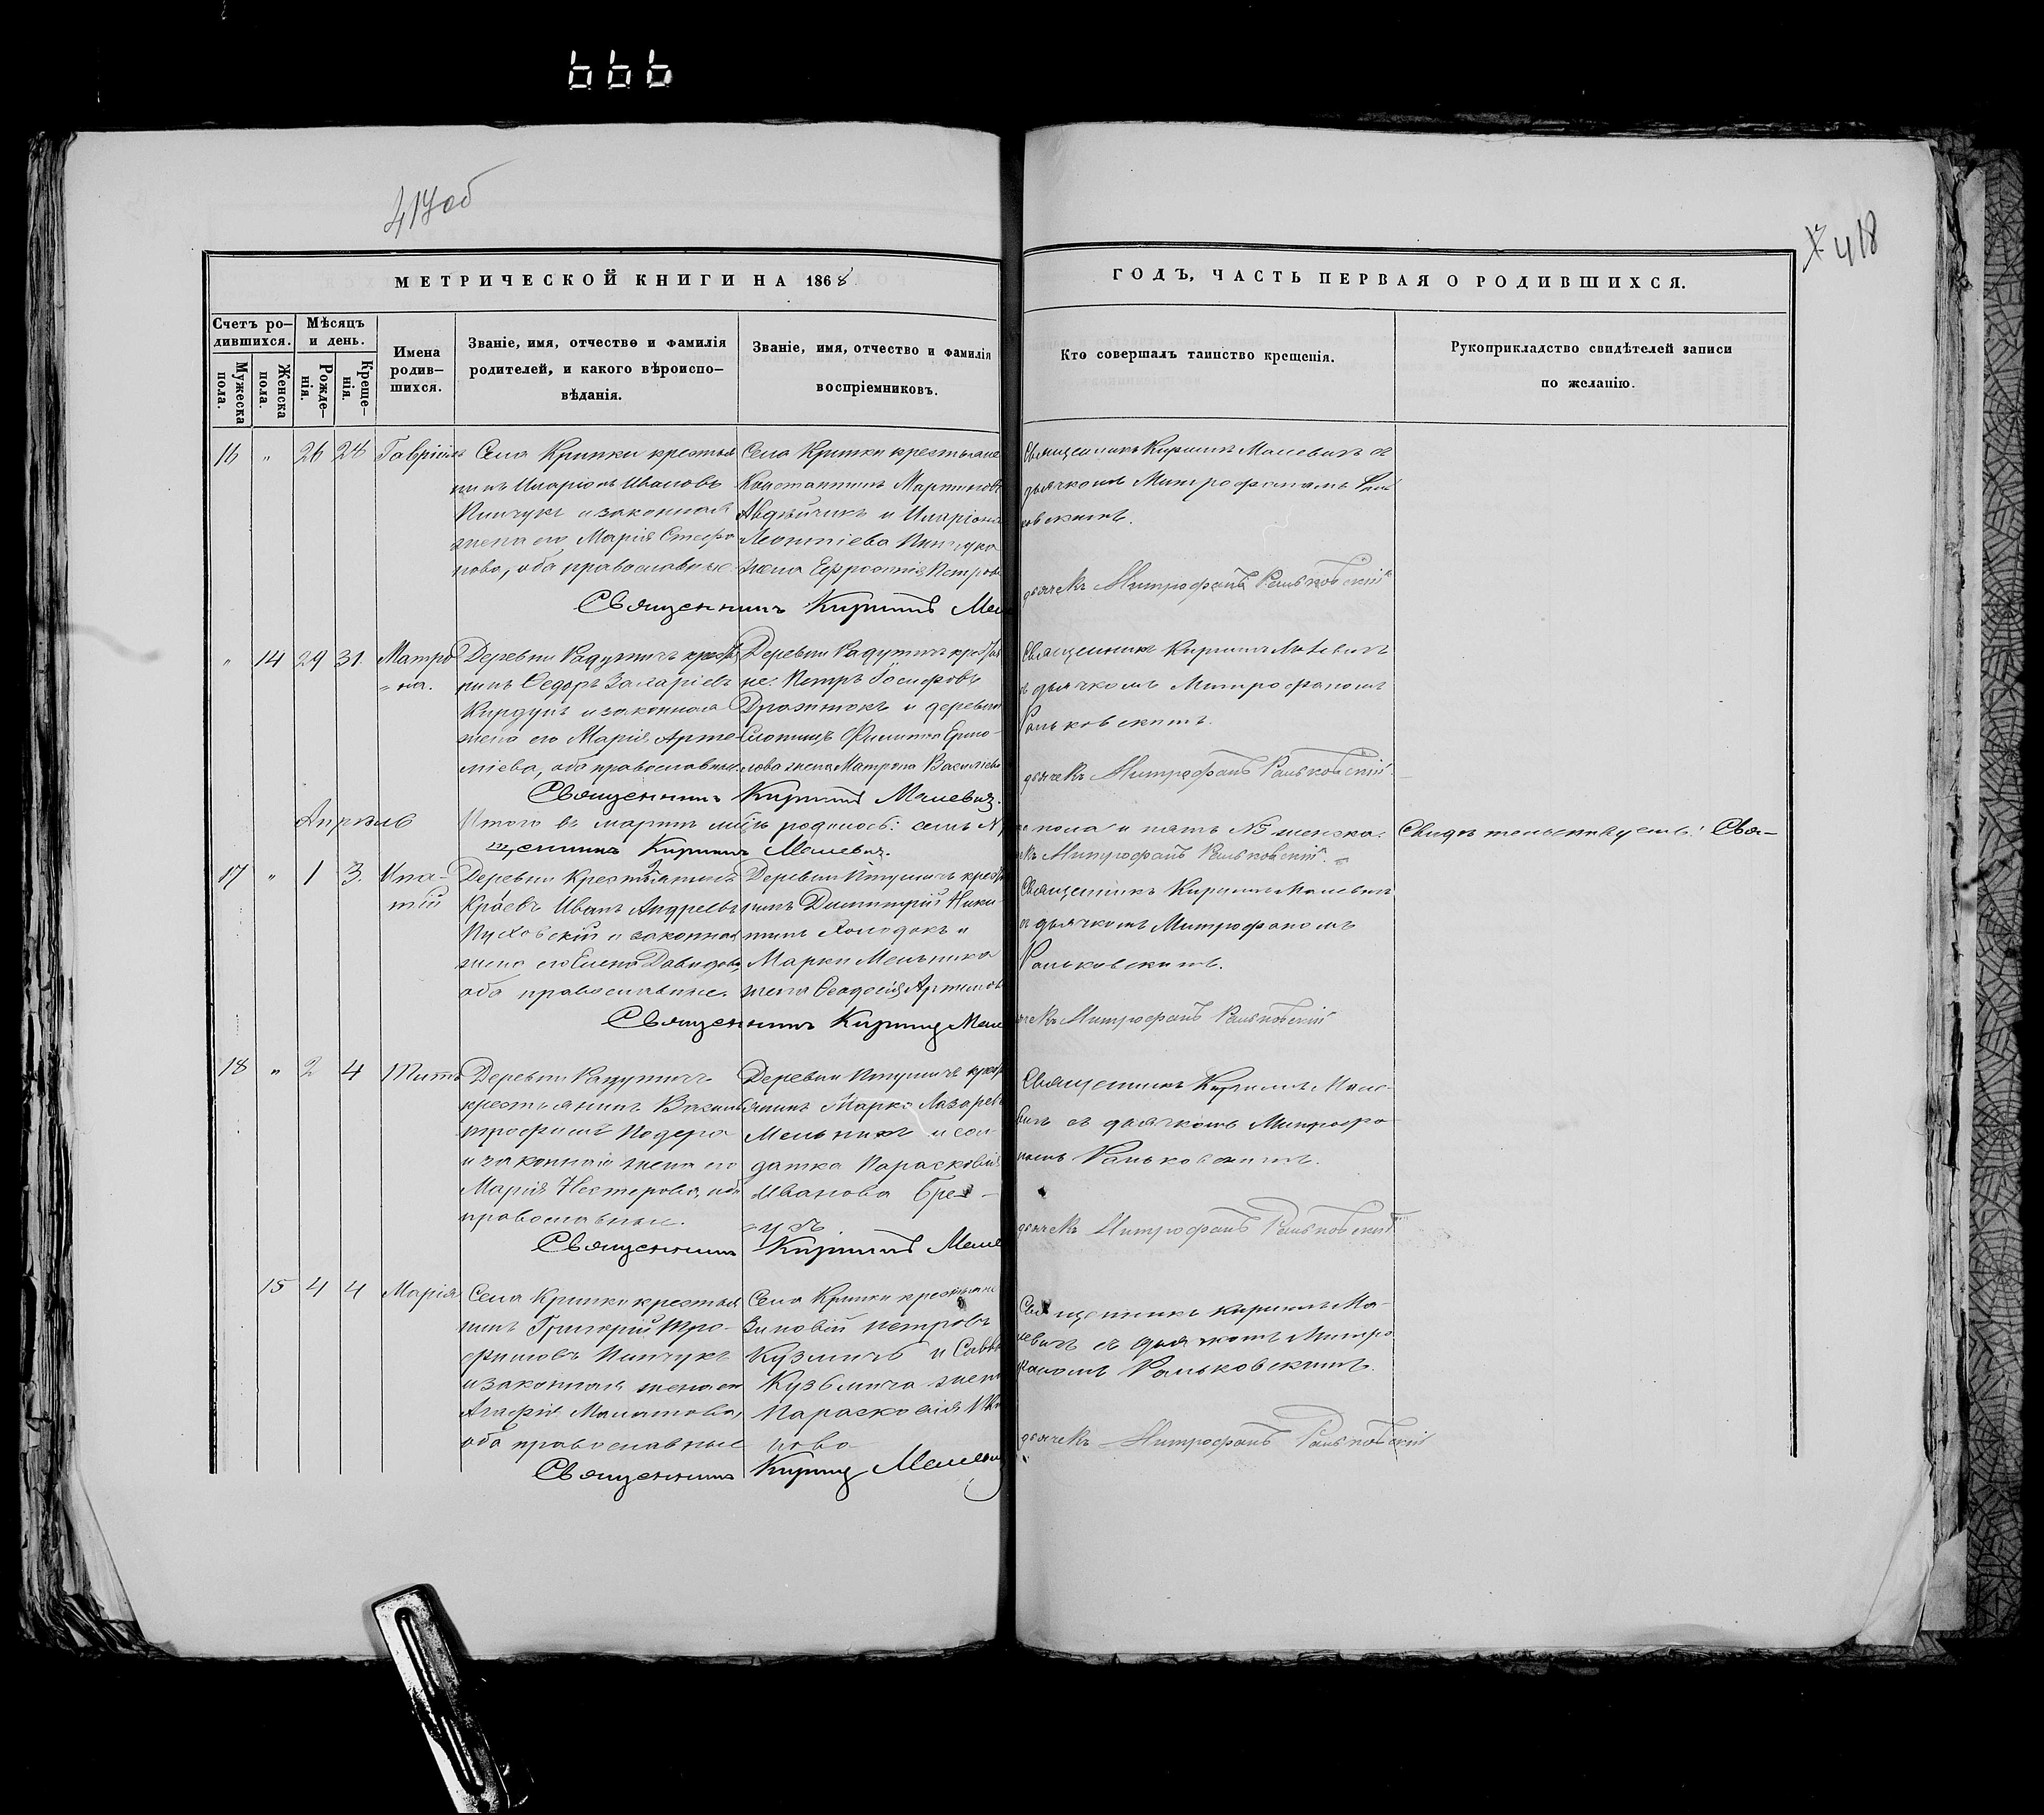 666
417об
418
МЕТРИЧЕСКОЙ КНИГИ НА 1868
ГОДЪ, ЧАСТЬ ПЕРВАЯ О РОДИВШИХСЯ.
Счетъ ро-
дившихся.
Мужеска
пола.
Женска
пола.
Мѣсяцъ
и день.
Рожде-
нія.
Креще-
нія.
Имена
родив-
шихся.
Званіе, имя, отчество и фамилія
родителей, и какого вѣроиспо-
вѣданія.
Званіе, имя, отчество и фамилія
воспріемниковъ.
Кто совершалъ таинство крещенія.
Рукоприкладство свидѣтелей записи
по желанію.
16 " 26 28 Гавріилъ
Села Крипки крестья
нинъ Иларіонъ Ивановъ
Пинчукъ и законная
жена его Марія Стефа
нова, оба православные
Села Крипки крестьяне
Константинъ Мартиновъ
Авдѣйчикъ и Иларіона
Леонтіева Пинчука
жена Ефросинія Петрова
Священникъ Кириллъ Малевичъ съ
дьячкомъ Митрофаномъ Рань
ковскимъ.
Священникъ Кириллъ Мале
дьячекъ Митрофанъ Раньковскій
" 14 29 31. Матро
на.
Деревни Радутичъ крестья
нинъ Ѳедоръ Захаріевъ
Кирдунъ и законная
жена его Марія Арте-
міева, оба православные
Деревни Радутичъ крестья
не: Петръ Іосифовъ
и деревни
Филиппа Ермо-
лова жена Матрона Василіева
Священникъ Кириллъ Малевичъ
съ дьячкомъ Митрофаномъ
Раньковскимъ.
дьячекъ Митрофанъ Раньковскій
Священникъ Кириллъ Малевичъ.
Апрѣль
Итого въ мартѣ мцѣ родилось: семь №7
пола и пять №5 женска. Свидѣтельствуетъ: Свя-
щенникъ Кириллъ Малевичъ.
Митрофанъ Раньковскій.
17 " 1 3. Ипа-
тій
Деревни Крестьянинъ
Краевъ Иванъ Андреевъ
Пуховскій и законная
жена его Елена Давидова,
оба православные.
Деревни Птушичъ крестья
нинъ Димитрій Ники-
тинъ Холодокъ и
Марки Мельника
жена Ѳеодосія Артемова
Священникъ Кириллъ Малевичъ
съ дьячкомъ Митрофаномъ
Раньковскимъ.
Священникъ Кириллъ Мале
Митрофанъ Раньковскій
18 " 2 4 Титъ
Деревни Радутичъ
крестьянинъ Василій
Трофимъ Подера
и законная жена его
Марія Нестерова, оба
православные.
Деревни Птушичъ крест
янинъ Марко Лазаревъ
Мельникъ и сол-
датка Парасковія
Иванова
Священникъ Кириллъ Мале-
вичъ съ дьячкомъ Митрофа
номъ Раньковскимъ.
Священникъ Кириллъ Мале
дьячекъ Митрофанъ Раньковскій
15 4 4 Марія
Села Крипки крестья
нинъ Григорій Тро-
фимовъ Пинчукъ
и законная жена его
Агафія Маматова,
оба православные
Села Крипки крестьяне
Зиновій Петровъ
Кузмичъ и Саввы
Кузьмича жена
Парасковія Ива
нова
Священникъ Кириллъ Ма-
левичъ съ дьячкомъ Митро
фаномъ Раньковскимъ.
дьячекъ Митрофанъ Раньковскій
Священникъ Кириллъ Малевичъ